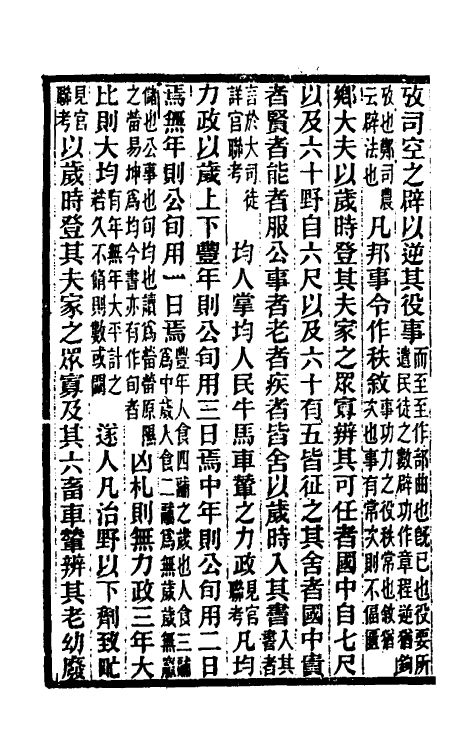 攷司空之辟以逆其役事而至至作部曲也旣已也役要所遣民徒之數辟功作章程逆猶鉤
攷也鄭司農云辟法也凡邦事令作秩敘事功力之役秩常也敘猶次也事有常次則不偪匱
鄉大夫以歲時登其夫家之眾寡辨其可任者國中自七尺
以及六十野自六尺以及六十有五皆征之其舍者國中貴
者賢者能者服公事者老者疾者皆舍以歲時入其書入其書者
言於大司徒詳官聯考 均人掌均人民牛馬車輦之力政見官聯考凡均
力政以歲上下豐年則公旬用三日焉中年則公旬用二日
焉無年則公旬用一日焉豐年人食四鬴之歲也人食三鬴爲中歲人食二鬴爲無歲歲無嬴
儲也公事也旬均也讀爲㽦㽦原隰之㽦易坤爲均今書亦有作旬者凶札則無力政三年大
比則大均有年無年大平計之若久不脩則數或闕 遂人凡治野以下劑致甿
見官聯考以歲時登其夫家之眾寡及其六畜車輦辨其老幼廢